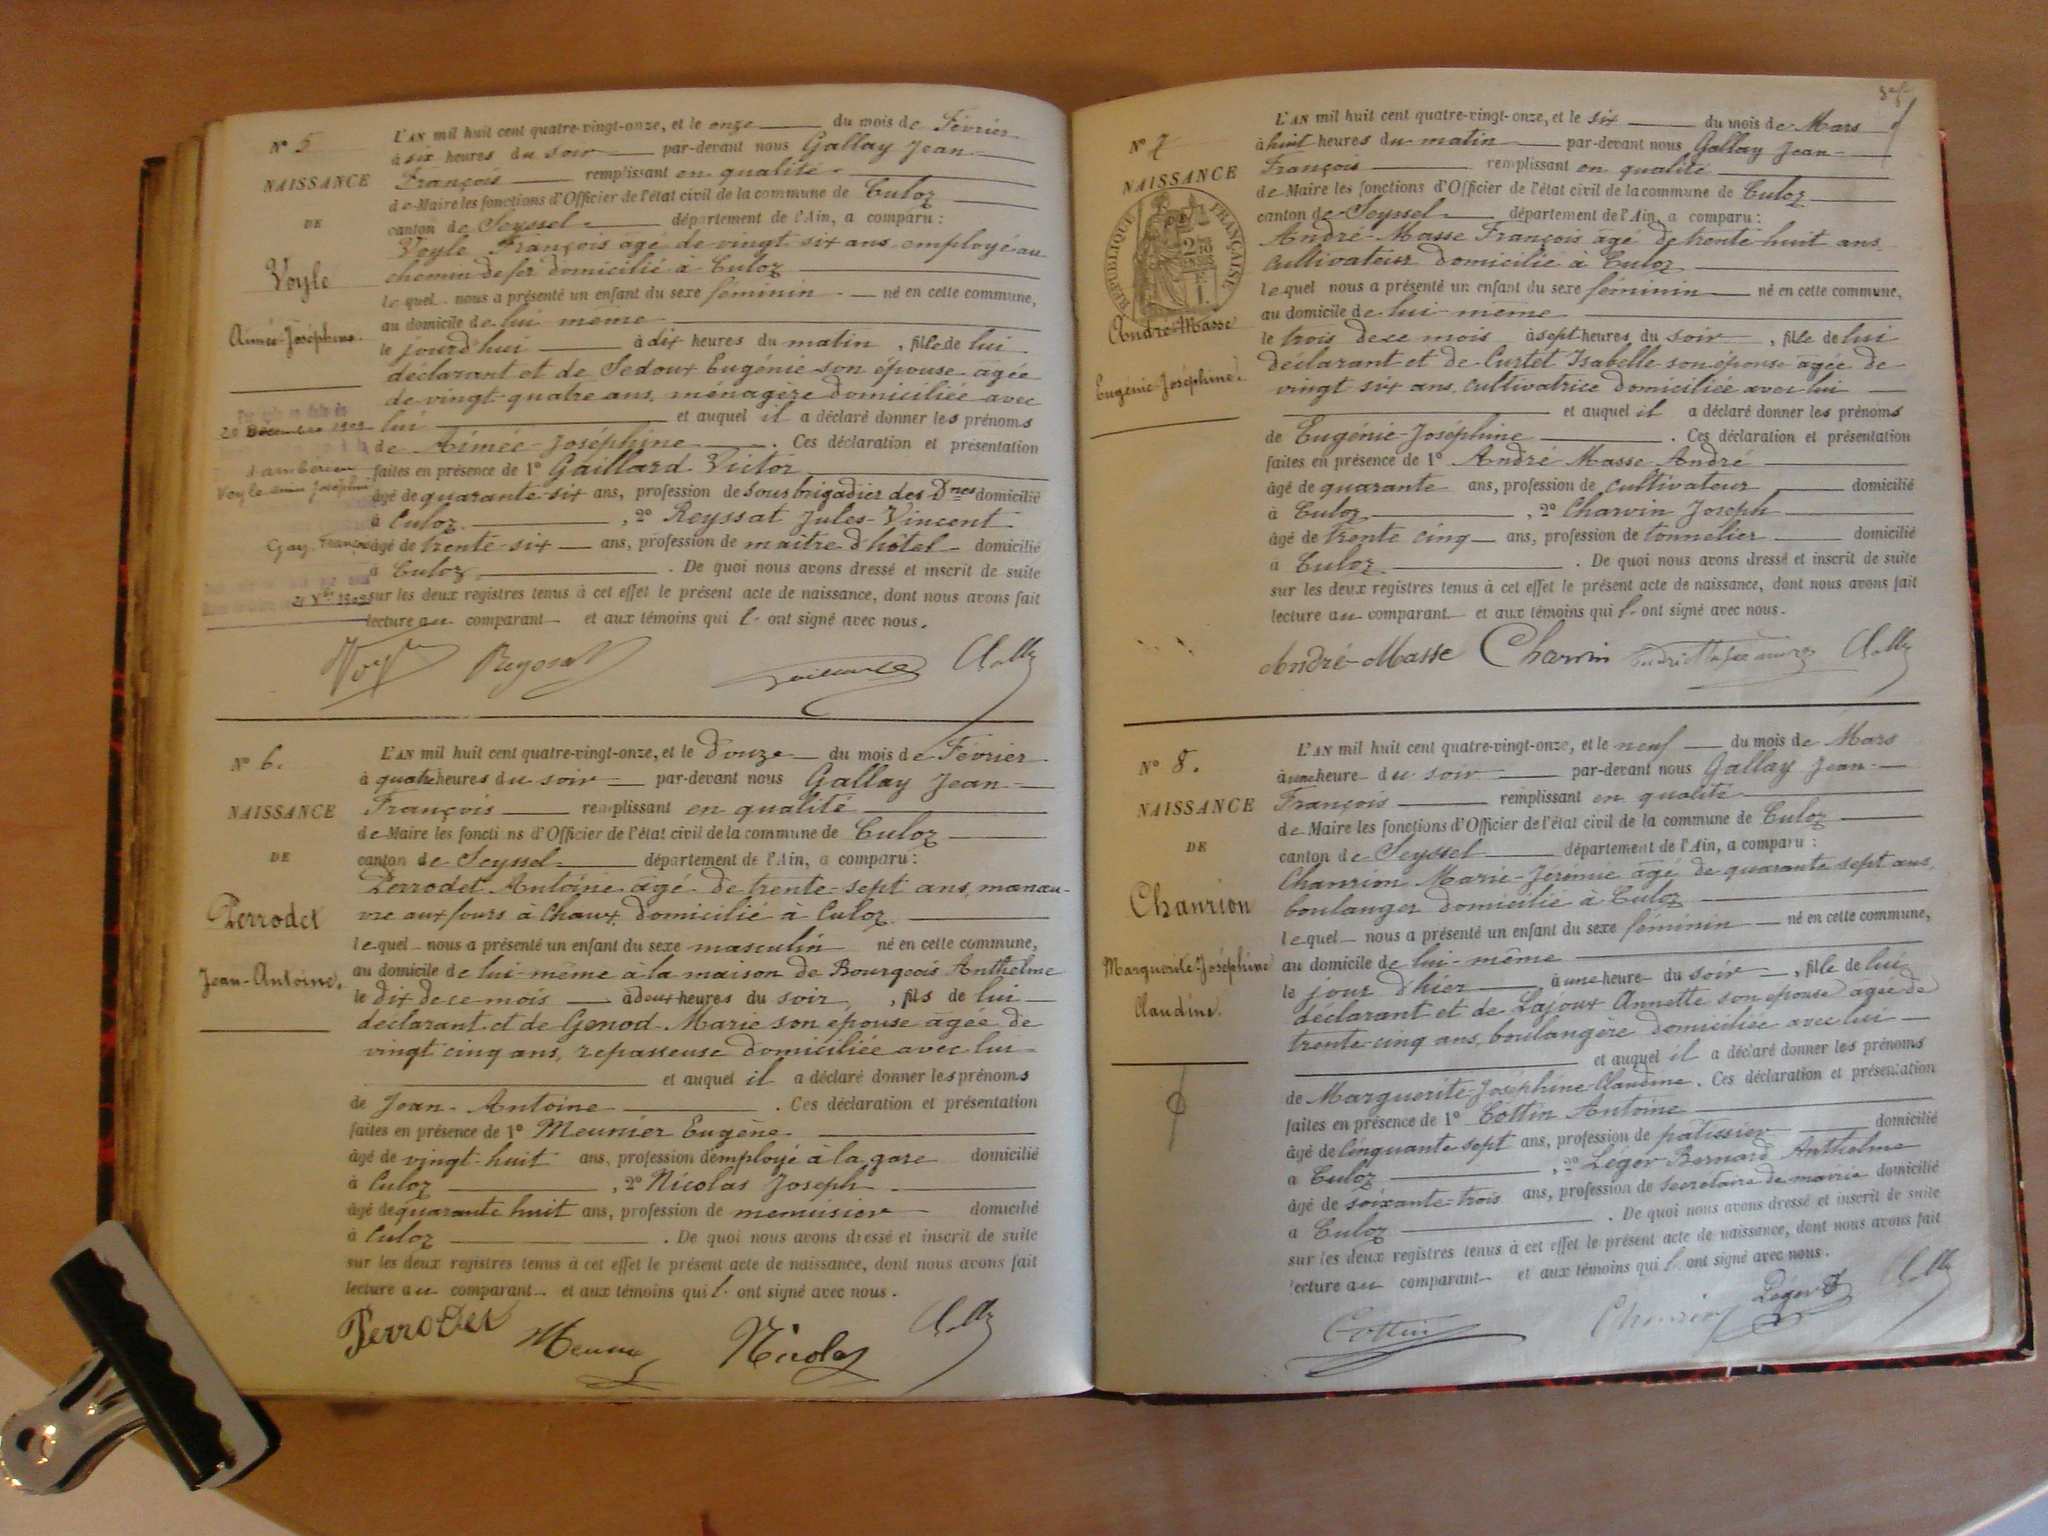 N° 5
NAISSANCE
DE
Voyle
Aimée-Joséphine.
20 Décembre 1909
Voyle Aimée Joséphine
Gay François
L'AN mil huit cent quatre-vingt-onze, et le onze du mois de Février
à six heures du soir par-devant nous Gallay Jean-
François remplissant en qualité
de Maire les fonctions d'Officier de l'état civil de la commune de Culoz
canton de Seyssel département de l'Ain, a comparu :
Voyle François âgé de vingt six ans employé au
chemin de fer domicilié à Culoz
lequel nous a présenté un enfant du sexe féminin né en cette commune,
au domicile de lui même
le jourd'hui à dix heures du matin, fille de lui
déclarant et de Sedoux Eugénie son épouse agée
de vingt-quatre ans, ménagère domiciliée avec
lui et auquel il a déclaré donner les prénoms
de Aimée-Joséphine. Ces déclaration et présentation
faites en présence de 1° Gaillard Victor
âgé de quarante-six ans, profession de sous brigadier des Dnes domicilié
à Culoz, 2° Reyssat Jules-Vincent
âgé de trente-six ans, profession de maître d'hôtel domicilié
à Culoz. De quoi nous avons dressé et inscrit de suite
sur les deux registres tenus à cet effet le présent acte de naissance, dont nous avons fait
lecture au comparant et aux témoins qui l'ont signé avec nous.
N° 6.
NAISSANCE
DE
Perrodet
Jean-Antoine.
L'AN mil huit cent quatre-vingt-onze, et le douze du mois de Février
à quatre heures du soir par-devant nous Gallay Jean-
François remplissant en qualité
de Maire les foncti ns d'Officier de l'état civil de la commune de Culoz
canton de Seyssel département de l'Ain, a comparu :
Perrodet Antoine âgé de trente-sept ans, manœu-
vre aux fours à Chaux, domicilié à Culoz
lequel nous a présenté un enfant du sexe masculin né en cette commune,
au domicile de lui-même à la maison de Bourgeois Anthelme
le dix de ce mois à deux heures du soir, fils de lui
déclarant et de Genod Marie son épouse âgée de
vingt cinq ans, repasseuse domiciliée avec lui
et auquel il a déclaré donner les prénoms
de Jean-Antoine. Ces déclaration et présentation
faites en présence de 1° Meunier Eugène
âgé de vingt-huit ans, profession d'employé à la gare domicilié
à Culoz, 2° Nicolas Joseph
âgé de quarante huit ans, profession de menuisier domicilié
à Culoz. De quoi nous avons dressé et inscrit de suite
sur les deux registres tenus à cet effet le présent acte de naissance, dont nous avons fait
lecture au comparant et aux témoins qui l'ont signé avec nous.
Perrodet Meunier Nicolas
N° 7
NAISSANCE
RÉPUBLIQUE FRANÇAISE
André-Masse
Eugénie-Joséphine.
L'AN mil huit cent quatre-vingt-onze, et le six du mois de Mars
à huit heures du matin par-devant nous Gallay Jean-
François remplissant en qualité
de Maire les fonctions d'Officier de l'état civil de la commune de Culoz
canton de Seyssel département de l'Ain, a comparu :
André-Masse François âgé de trente-huit ans
cultivateur domicilié à Culoz
lequel nous a présenté un enfant du sexe féminin né en cette commune,
au domicile de lui-même
le trois de ce mois à sept heures du soir, fille de lui
déclarant et de Curtet Isabelle son épouse âgée de
vingt six ans, cultivatrice domiciliée avec lui
et auquel il a déclaré donner les prénoms
de Eugénie-Joséphine. Ces déclaration et présentation
faites en présence de 1° André Masse André
âgé de quarante ans, profession de cultivateur domicilié
à Culoz, 2° Charvin Joseph
âgé de trente cinq ans, profession de tonnelier domicilié
à Culoz. De quoi nous avons dressé et inscrit de suite
sur les deux registres tenus à cet effet le présent acte de naissance, dont nous avons fait
lecture au comparant et aux témoins qui l'ont signé avec nous.
André-Masse Charvin
N° 8.
NAISSANCE
DE
Chanrion
Marguerite-Joséphine
Claudine.
L'AN mil huit cent quatre-vingt-onze, et le neuf du mois de Mars
à une heure du soir par-devant nous Gallay Jean-
François remplissant en qualité
de Maire les fonctions d'Officier de l'état civil de la commune de Culoz
canton de Seyssel département de l'Ain, a comparu :
Chanrion Marie-Jeremie âgé de quarante sept ans,
boulanger domicilié à Culoz
lequel nous a présenté un enfant du sexe féminin né en cette commune,
au domicile de lui-même
le jour d'hier à une heure du soir, fille de lui
déclarant et de Lajoux Annette son épouse agée de
trente-cinq ans, boulangère domiciliée avec lui
et auquel il a déclaré donner les prénoms
de Marguerite-Joséphine-Claudine. Ces déclaration et présentation
faites en présence de 1° Cottin Antoine
âgé de cinquante sept ans, profession de pâtissier domicilié
à Culoz, 2° Léger Bernard Anthelme
âgé de soixante-trois ans, profession de secrétaire de mairie domicilié
à Culoz. De quoi nous avons dressé et inscrit de suite
sur les deux registres tenus à cet effet le présent acte de naissance, dont nous avons fait
lecture au comparant et aux témoins qui l'ont signé avec nous.
Cottin Chanrion Léger